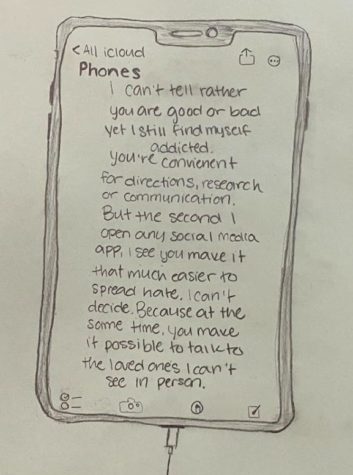 < All icloud
Phones
I can't tell rather
you are good or bad
yet I still find myself
addicted.
You're convienent
for directions, research
or communication.
But the second I
open any social media
app, I see you make it
that much easier to
spread hate. I can't
decide. Because at the
same time, you make
it possible to talk to
the loved ones I can't
see in person.